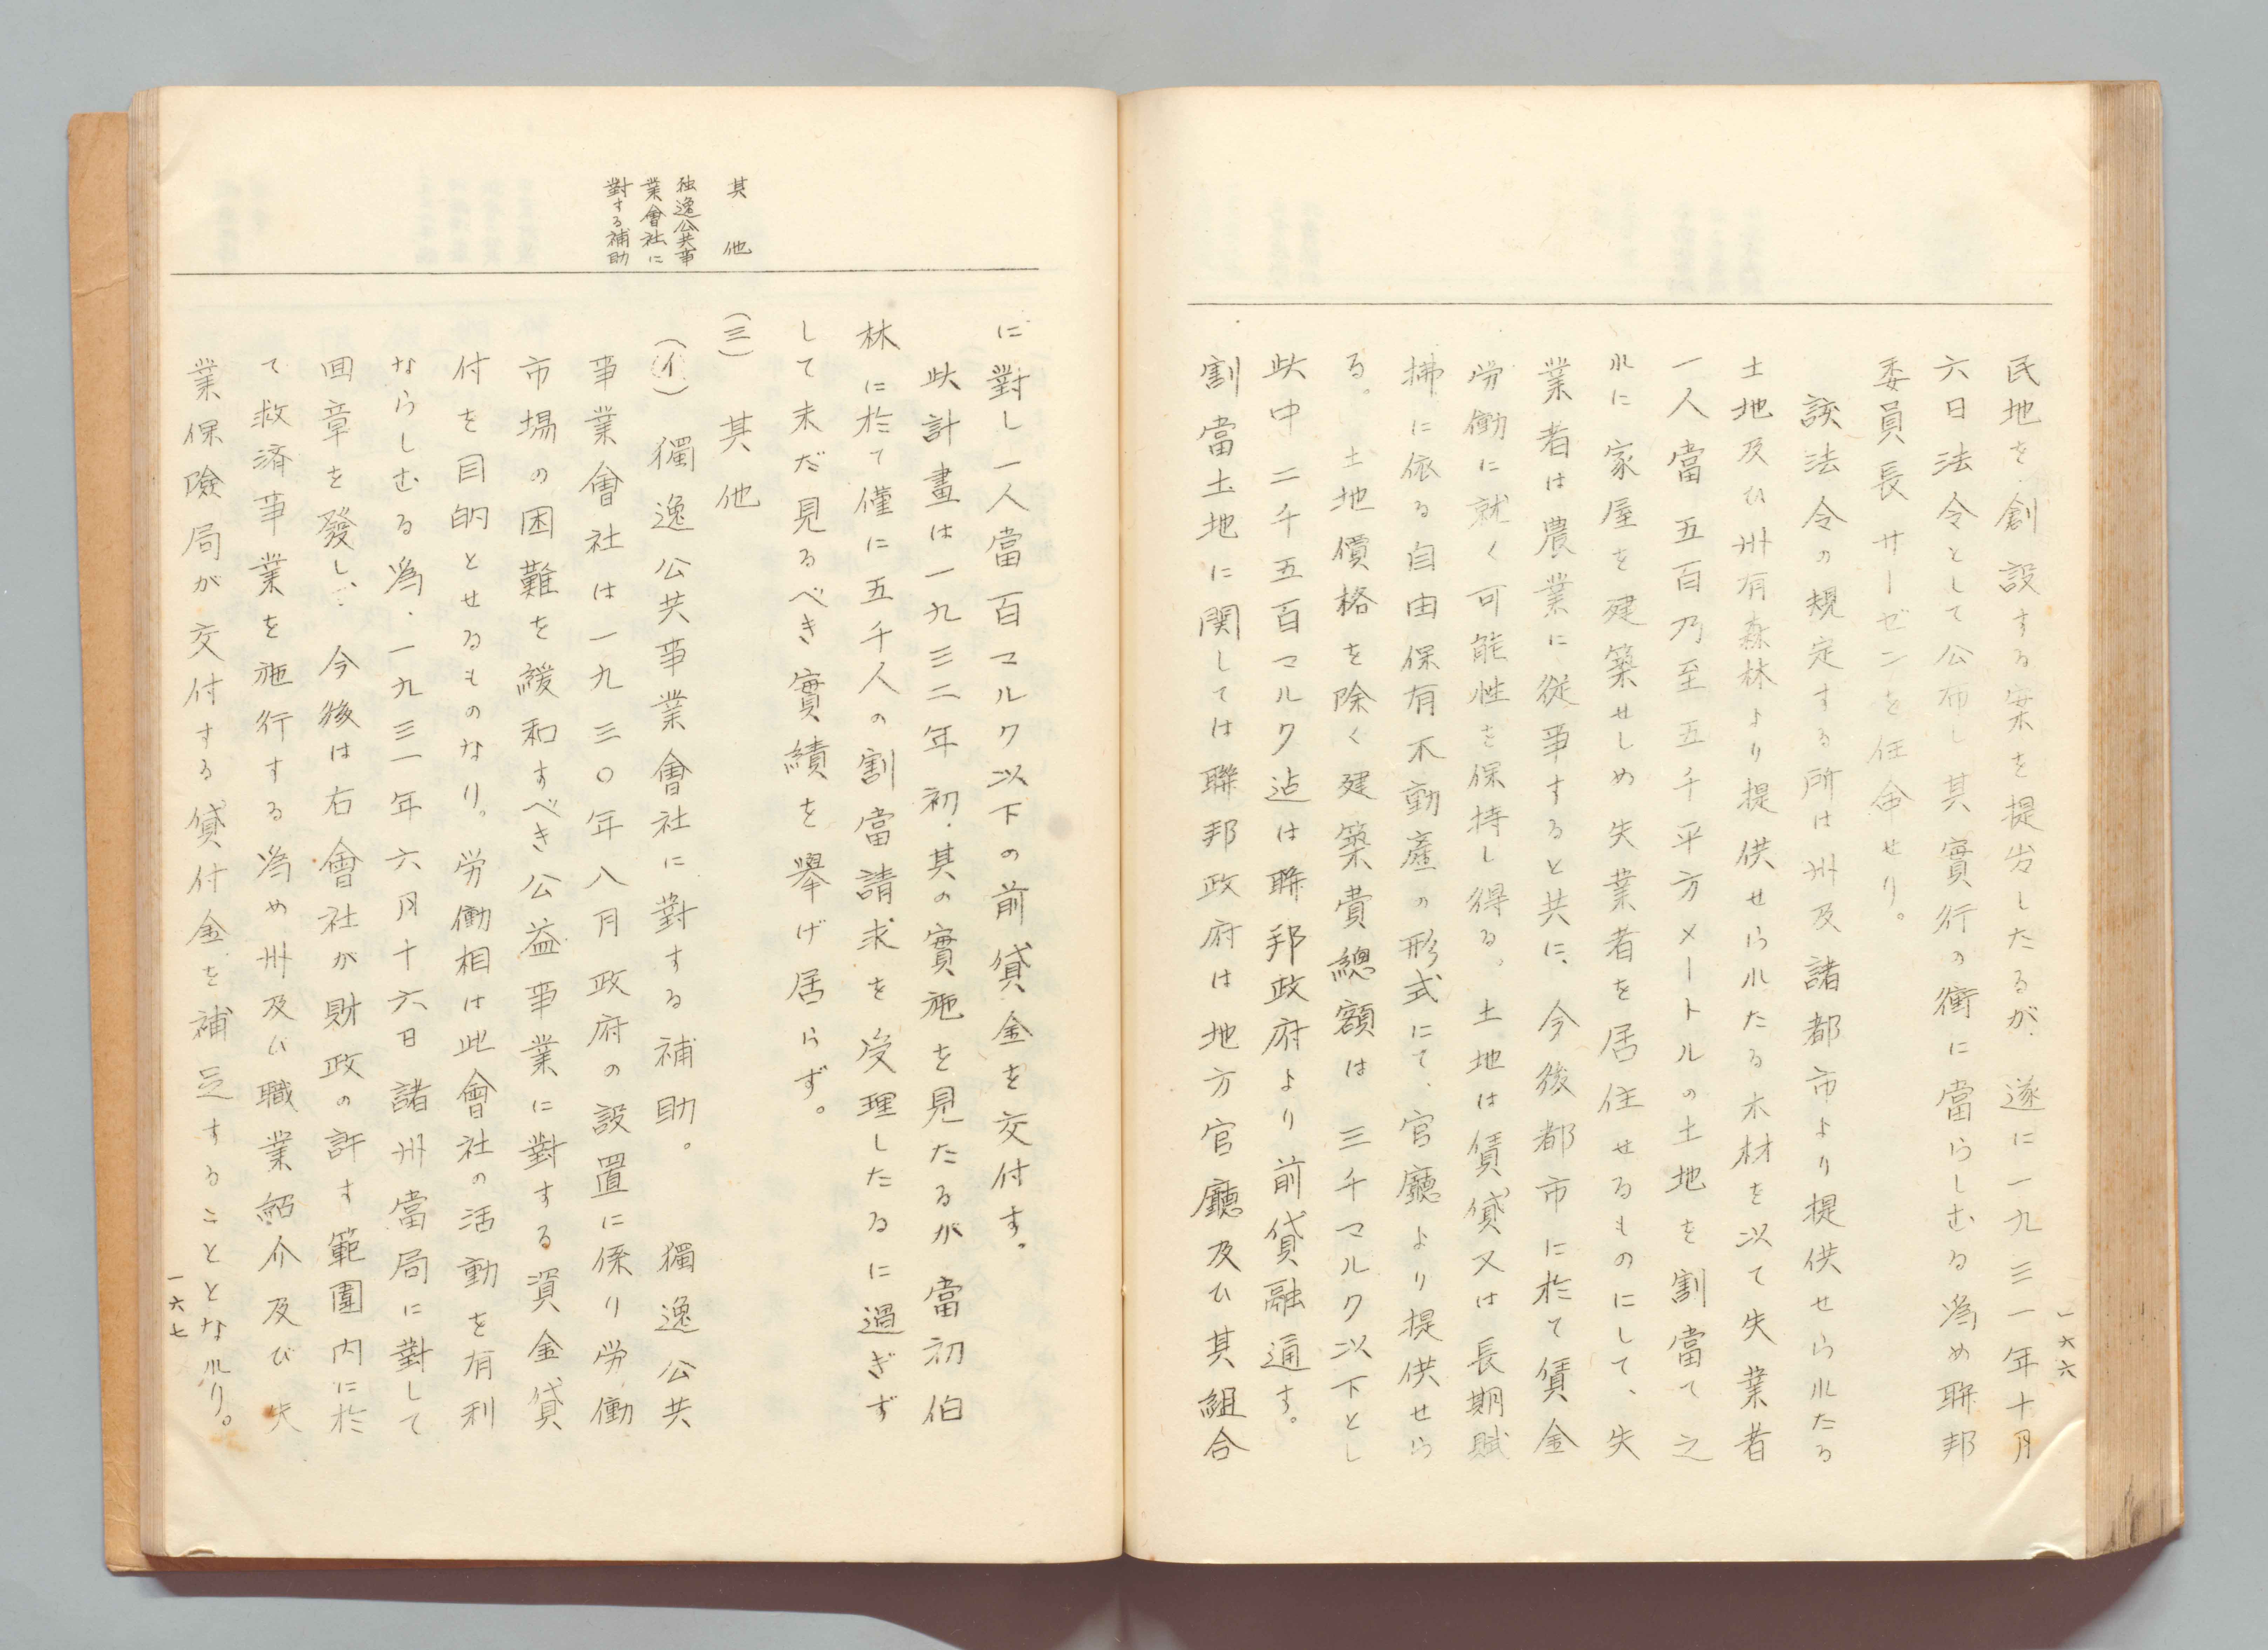 一六六
民地を創設する案を提出したるが、遂に一九三一年十月
六日法令として公布し其實行の衝に當らしむる為め聯邦
委員長サーゼンを任命せり。
該法令の規定する所は州及諸都市より提供せられたる
土地及ひ州有森林より提供せられたる木材を以て失業者
一人當五百乃至五千平方メートルの土地を割當て之
れに家屋を建築せしめ失業者を居住せるものにして、失
業者は農業に従事すると共に、今後都市に於て賃金
労働に就く可能性を保持し得る。土地は賃貸又は長期賦
拂に依る自由保有不動産の形式にて、官廳より提供せら
る。土地價格を除く建築費總額は三千マルク以下とし
此中二千五百マルク迠は聯邦政府より前貸融通す。
割當土地に関しては聯邦政府は地方官廳及ひ其組合
に對し一人當百マルク以下の前貸金を交付す。
此計畫は一九三二年初、其の實施を見たるが當初伯
林に於て僅に五千人の割當請求を受理したるに過ぎず
して未だ見るべき實績を擧げ居らず。
其他
(三) 其他
独逸公共事
業會社に
對する補助
(イ) 獨逸公共事業會社に對する補助。 獨逸公共
事業會社は一九三〇年八月政府の設置に係り労働
市場の困難を緩和すべき公益事業に對する資金貸
付を目的とせるものなり。労働相は此會社の活動を有利
ならしむる為、一九三一年六月十六日諸州當局に對して
回章を發し、今後は右會社が財政の許す範囲内に於
て救済事業を施行する為め州及び職業紹介及び失
業保險局が交付する貸付金を補足することとなれり。
一六七